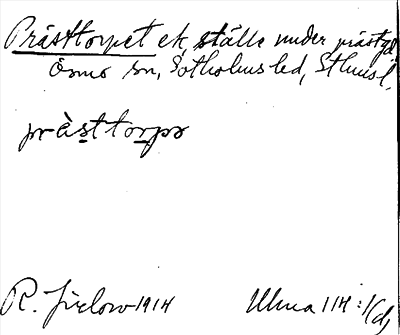 Prästtorpet ek, ställe under prästgd
Ösmo sn, Sotholms hd, Sthms l.
prästtorpə
R. Jirlow 1914 Ulma 114:1(d)